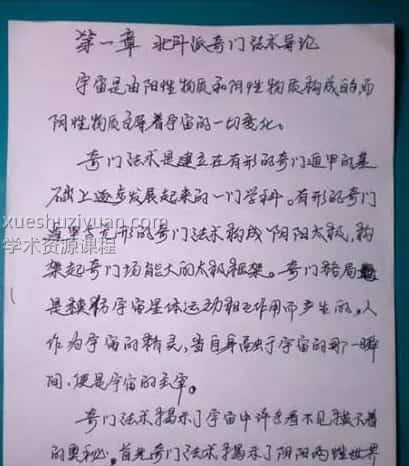 第一章 北斗派奇门法术导论
宇宙是由阳性物质和阴性物质构成的,而
阴性物质主导着宇宙的一切变化。
奇门法术是建立在有形的奇门遁甲的基
础上逐步发展起来的一门学科。有形的奇门
xueshuziyuan.com
遁甲与无形的奇门法术构成"阴阳太极,构
学术资源课程
架起奇门场能大的太极框架。奇门格局
是模仿宇宙星体运动相互作用而产生的。人
作为宇宙的精灵,当自身融于宇宙的那一瞬
间,便是宇宙的主宰。
奇门法术揭示了宇宙中许多看不见摸不着
的奥秘。首先奇门法术揭示了阴阳两性世界